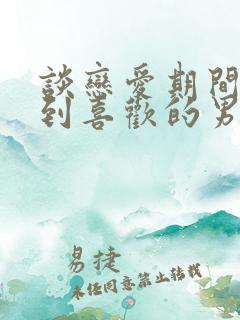 談戀愛期間
到喜歡的男
易捷
未任同意禁止轉載